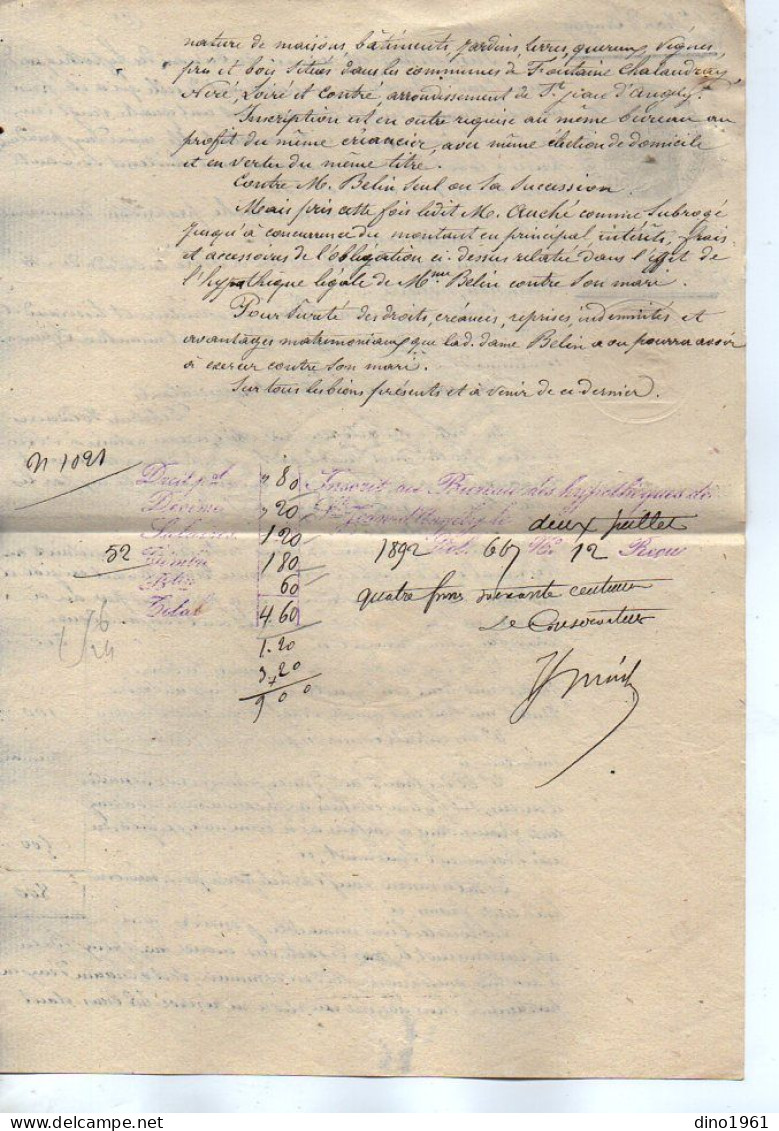 nature de maisons, bâtiments, jardins, terres, quereux, vignes,
prés et bois situés dans les communes de Fontaine Chalandray,
Néré, Loiré et Contré, arrondissement de St Jean d'Angély.
Inscription est en outre requise au même bureau au
profit du même créancier, avec même élection de domicile
et en vertu du même titre.
Contre M. Belin seul ou sa succession.
Mais pris cette fois ledit M. Auché comme subrogé
jusqu'à concurrence du montant en principal, intérêts, frais
et accessoires de l'obligation ci-dessus relatée dans l'effet de
l'hypothèque légale de Mme Belin contre son mari.
Pour sureté des droits, créances, reprises, indemnités et
avantages matrimoniaux que lad. dame Belin a ou pourra avoir
à exercer contre son mari.
Sur tous les biens présents et à venir de ce dernier.
N 1091
Droit pel " 80 Inscrit au Bureau des hypothèques de
Décime " 20 St Jean d'Angély le deux juillet
Salaires 1.20
52 Timbre 1 80 1892 Vol. 667 No 12 Reçu
60 quatre francs soixante centimes
Total 4 60 Le Conservateur
1.20
3,20
9 00
76
24
dino1961